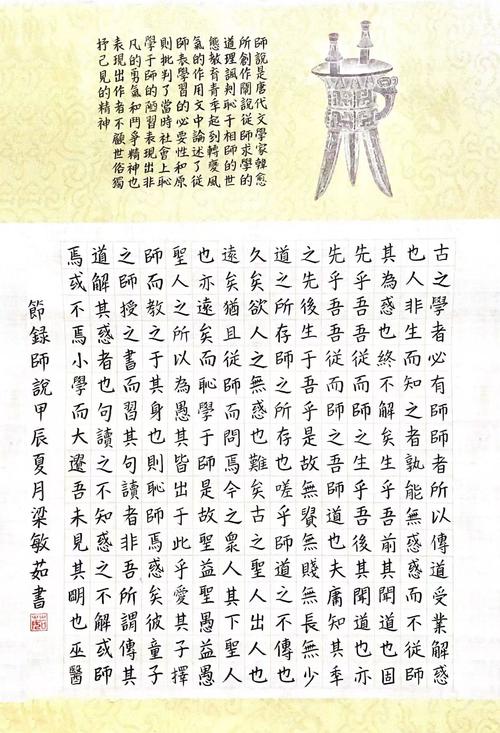 師說是唐代文學家韓愈
所創作闡說從師求學的
道理諷刺恥于相師的世
態教育青秊起到轉變風
氣的作用文中論述了從
師表學習的必要性和原
則批判了當時社會上恥
學于師的陋習表現出非
凡的勇氣和鬥爭精神也
表現出作者不顧世俗獨
抒己見的精神
古之學者必有師師者所以傳道受業解惑
也人非生而知之者孰能無惑惑而不從師
其為惑也終不解矣生乎吾前其聞道也固
先乎吾吾從而師之生乎吾後其聞道也亦
先乎吾吾從而師之吾師道也夫庸知其秊
之先後生于吾乎是故無貴無賤無長無少
道之所存師之所存也嗟乎師道之不傳也
久矣欲人之無惑也難矣古之聖人出人也
遠矣猶且從師而問焉今之眾人其下聖人
也亦遠矣而恥學于師是故聖益聖愚益愚
聖人之所以為愚其皆出于此乎愛其子擇
師而教之于其身也則恥師焉惑矣彼童子
之師授之書而習其句讀者非吾所謂傳其
道解其惑者也句讀之不知惑之不解或師
焉或不焉小學而大遺吾未見其朙也巫醫
節錄師說甲辰夏月梁敏茹書